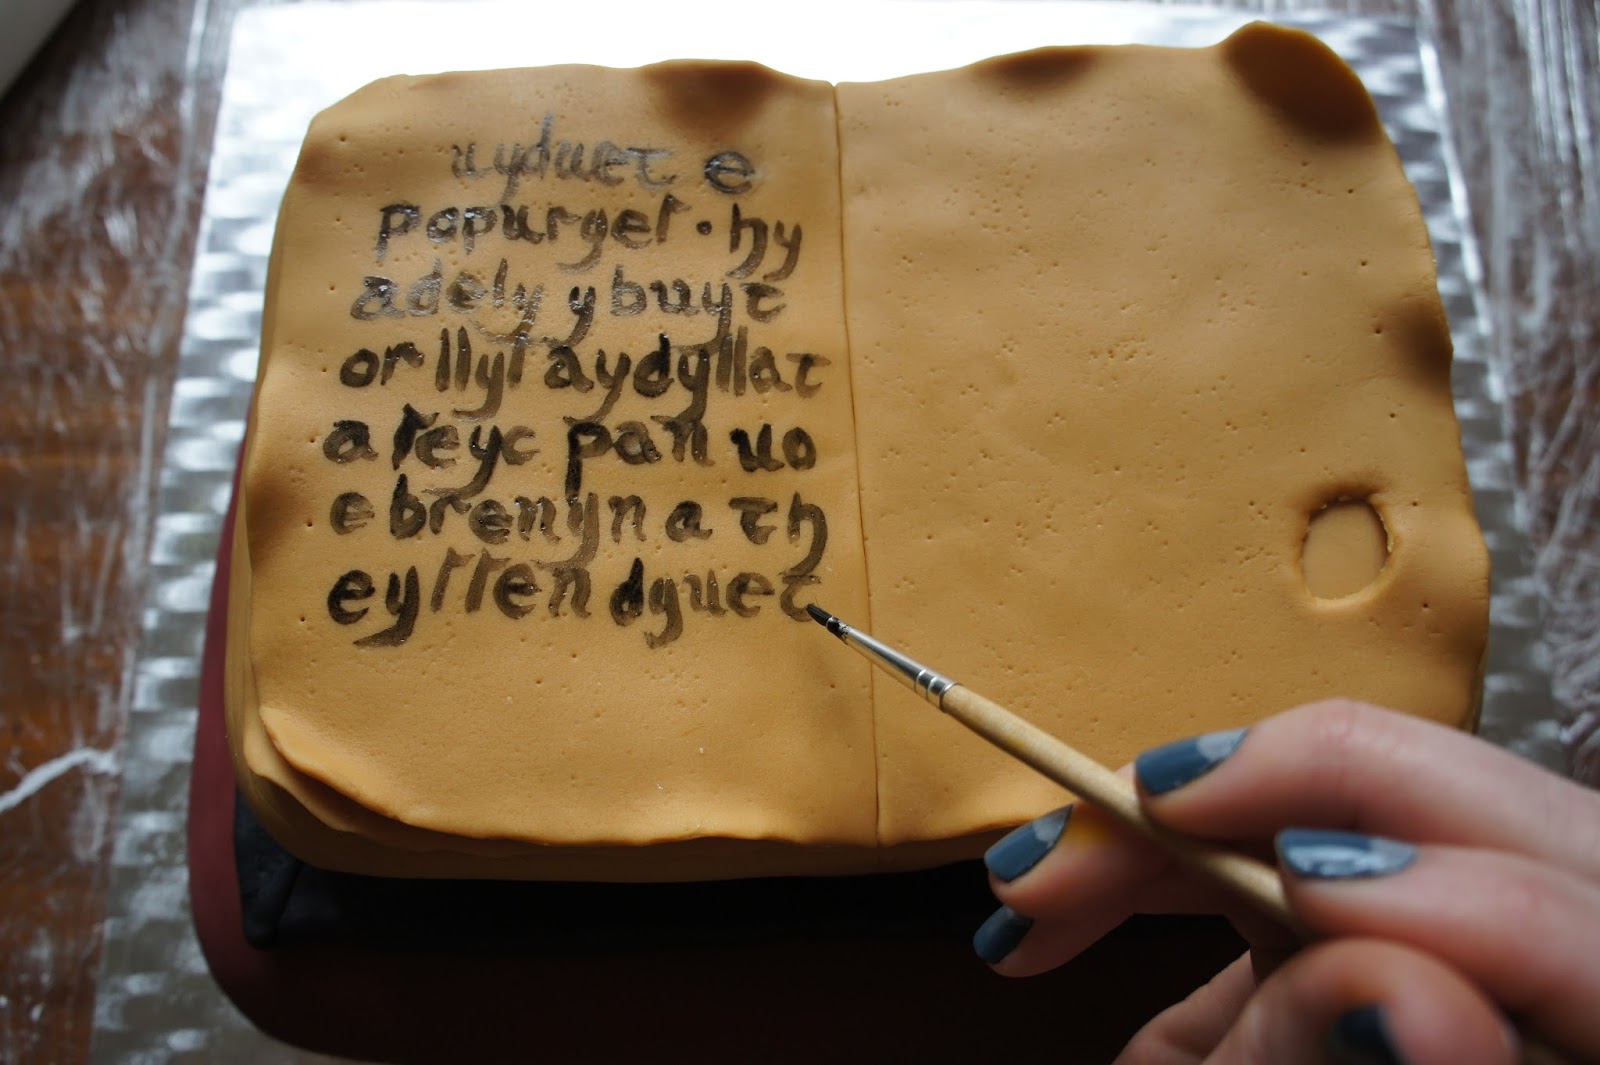 uyduet e
popurgeſ · hy
adely y buyt
or llyſ aydyllat
a ſeyc pan uo
e brenyn a th
eyſſen dguet